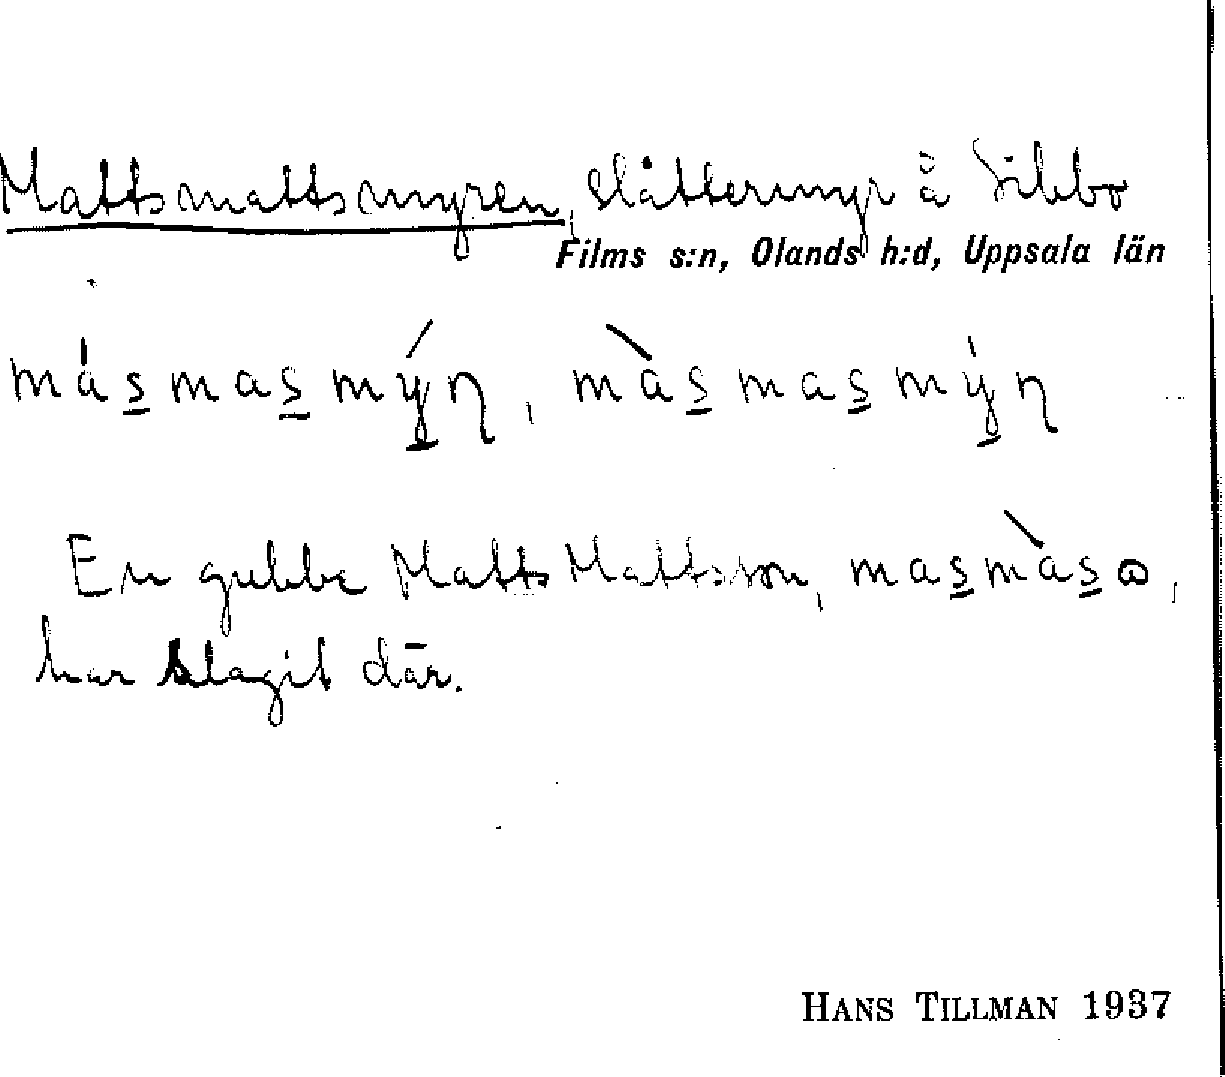 Mattsmattsmyren, slåttermyr å Sibbo
Films s:n, Olands h:d, Uppsala län
másmasmýn, màsmasmýn
En gubbe Matts Mattsson, masmàsɷ,
har slagit där.
HANS TILLMAN 1937